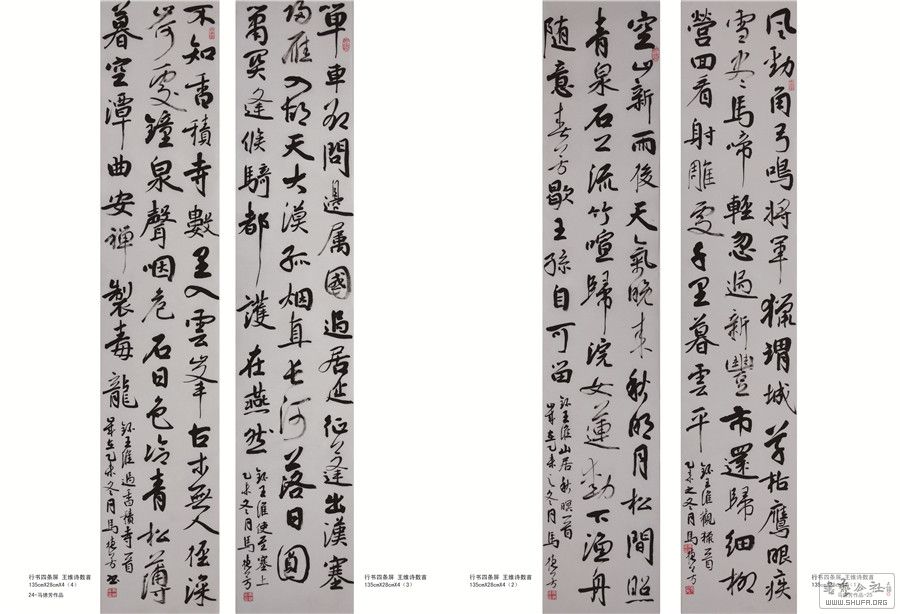 風勁角弓鳴将軍獵渭城草枯鷹眼疾
雪尽馬啼輕忽過新豐市還歸細柳
營回看射雕處千里暮雲平
録王維觀獵一首
乙未之冬月馬德芳
空山新雨後天氣晚来秋明月松間照
青泉石上流竹喧歸浣女蓮動下漁舟
随意春芳歇王孫自可留
録王維山居秋暝一首
歲在乙未之冬月馬德芳
單車欲問邊属國過居延征蓬出漢塞
歸雁入胡天大漠孤烟直長河落日圓
蕭関逢候騎都護在燕然
録王維使至塞上
乙未冬月馬德芳
不知香積寺數里入雲峰古木無人徑深
何處鐘泉聲咽危石日色冷青松薄
暮空潭曲安禅製毒龍
録王維過香積寺一首
歲在乙未冬月馬德芳書
行书四条屏 王维诗数首
135cmX28cmX4（4）
24·马德芳作品
行书四条屏 王维诗数首
135cmX28cmX4（3）
行书四条屏 王维诗数首
135cmX28cmX4（2）
行书四条屏 王维诗数首
马德芳作品·25
WWW.SHUFA.ORG